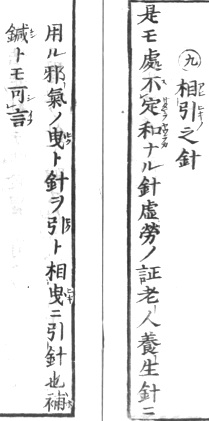 ㊈相引之針
是モ處不定和ナル針虚勞ノ証老人養生針ニ
用ル邪氣ノ曳ト針ヲ引ト相曳ニ引針也補
鍼トモ可言